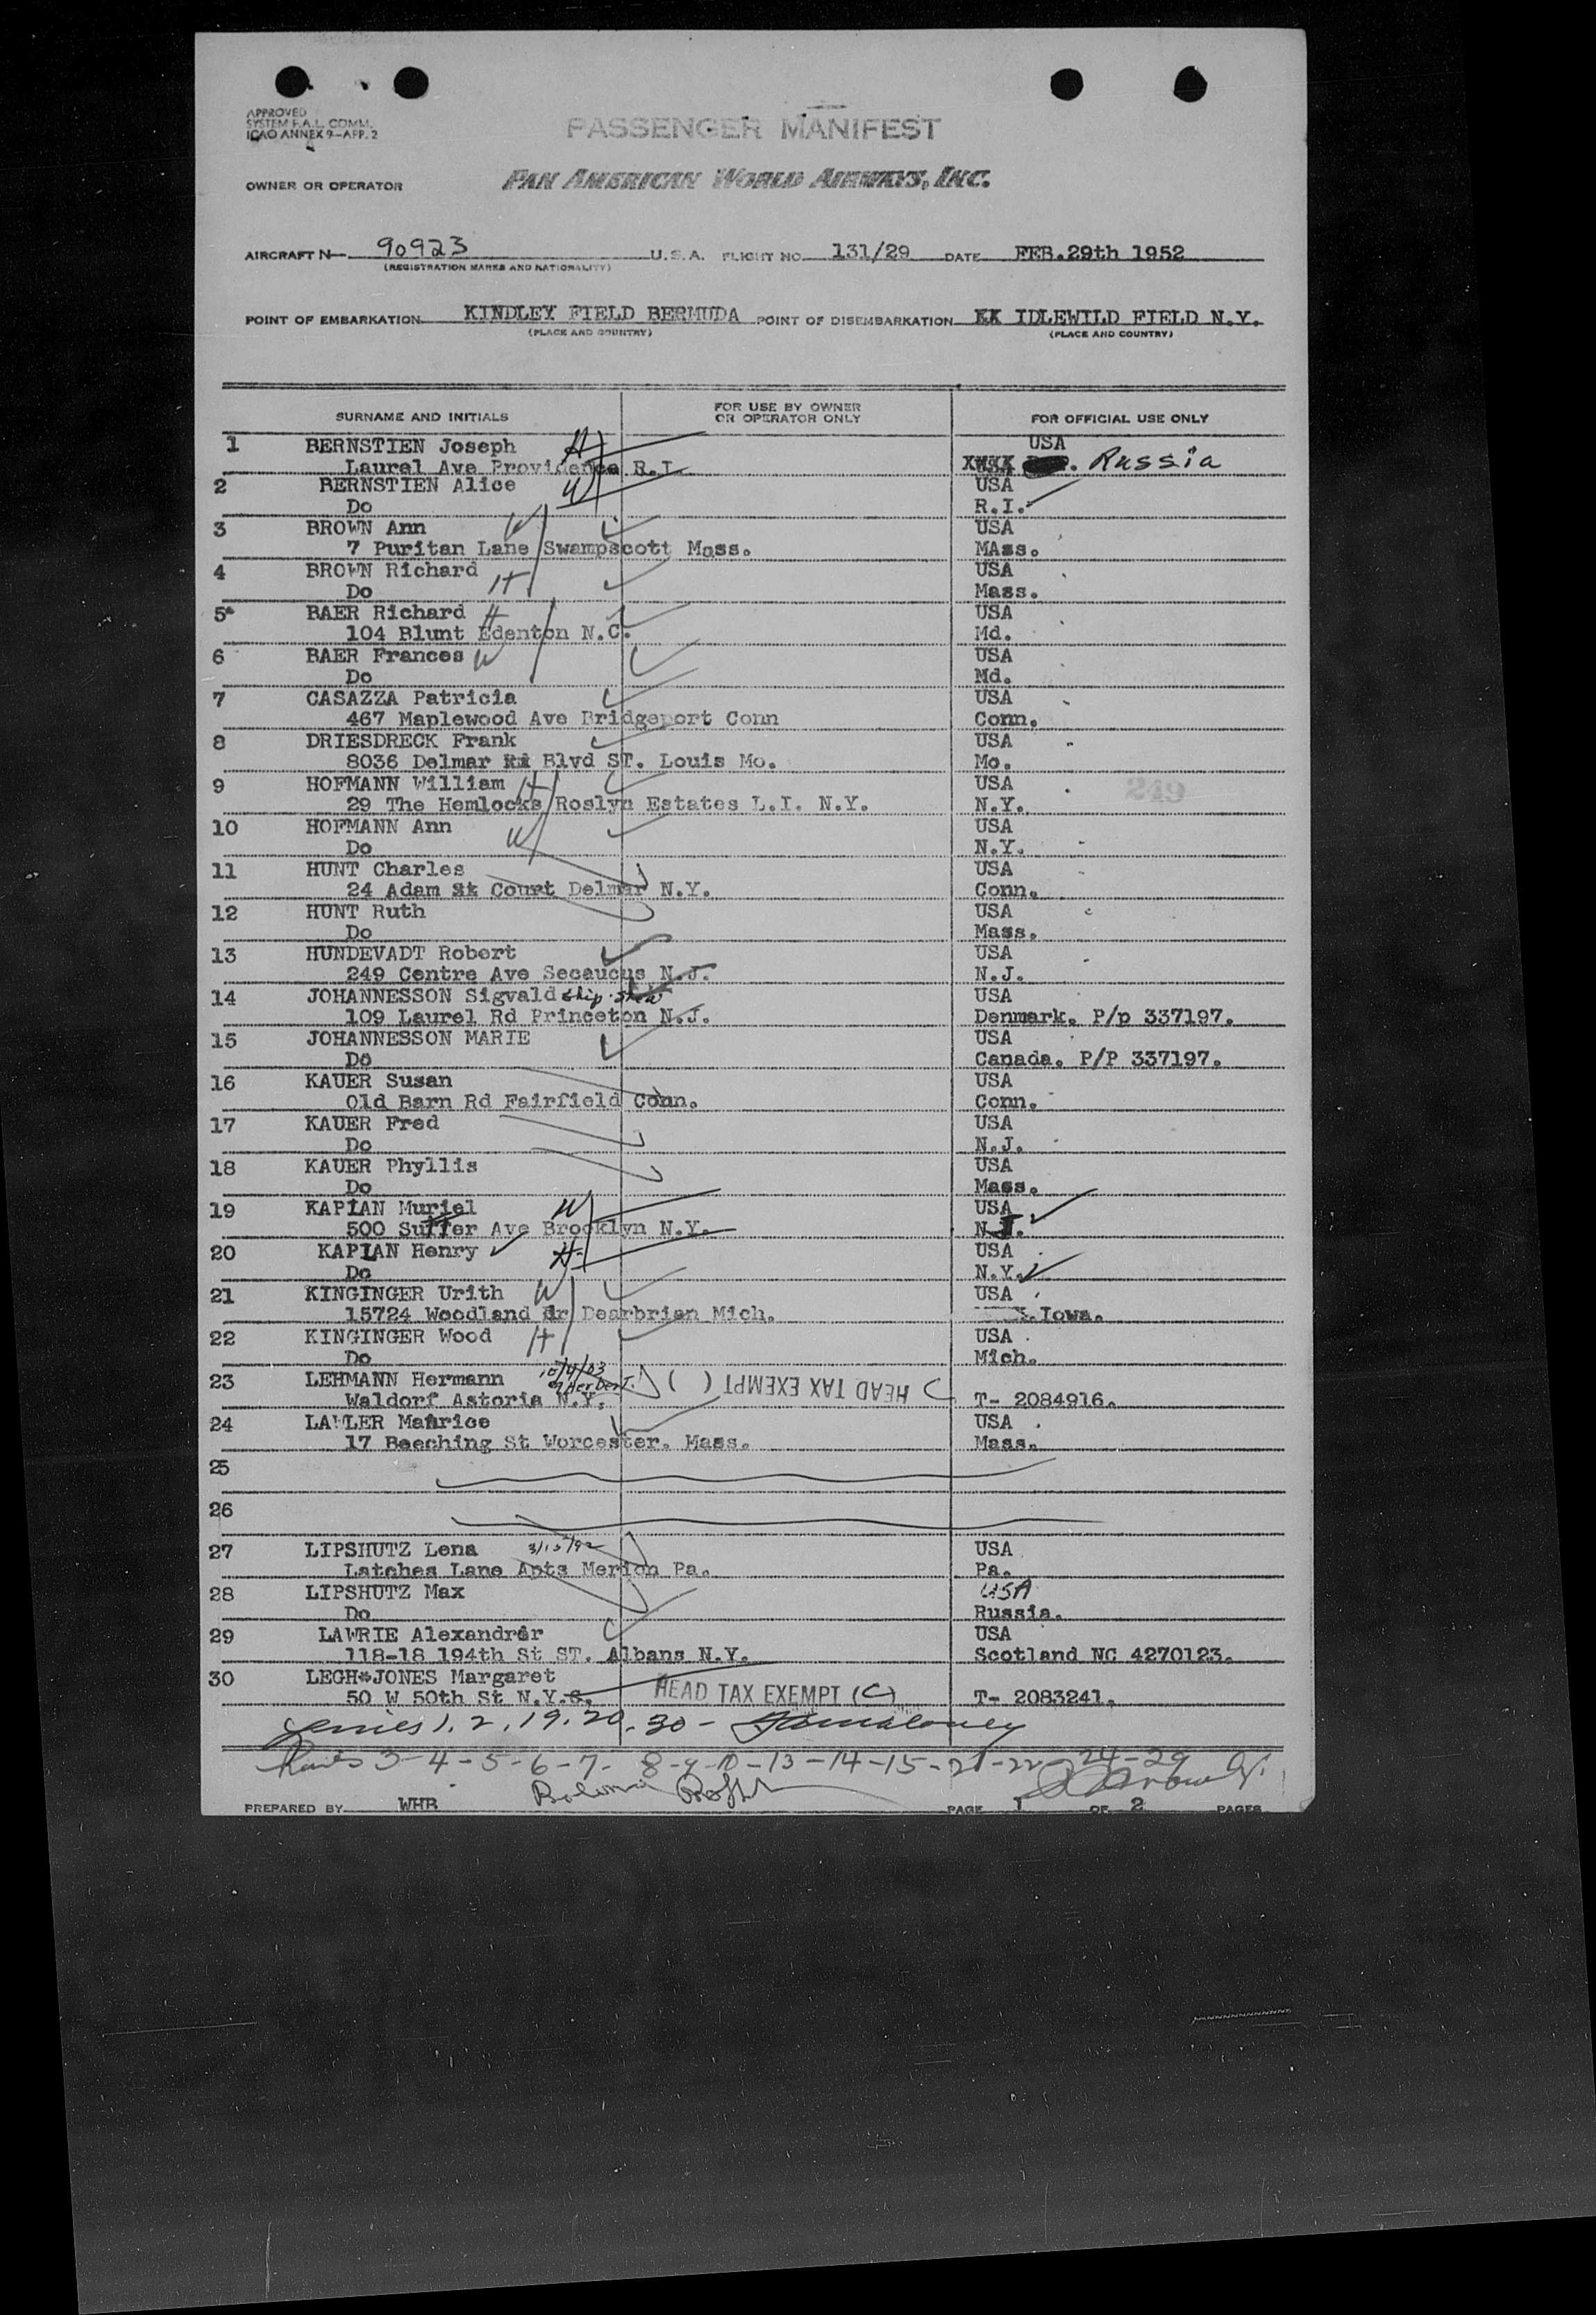 APPROVED
SYSTEM P.A.L. COMM.
ICAO ANNEX 9-APP. 2
PASSENGER MANIFEST
OWNER OR OPERATOR PAN AMERICAN WORLD AIRWAYS, INC.
AIRCRAFT N- 90923 U.S.A. FLIGHT NO. 131/29 DATE FEB.29th 1952
(REGISTRATION MARKS AND NATIONALITY)
POINT OF EMBARKATION KINDLEY FIELD BERMUDA POINT OF DISEMBARKATION KK IDLEWILD FIELD N.Y.
(PLACE AND COUNTRY) (PLACE AND COUNTRY)
SURNAME AND INITIALS FOR USE BY OWNER OR OPERATOR ONLY FOR OFFICIAL USE ONLY
1 BERNSTIEN Joseph H USA
Laurel Ave Providence R.I Russia
2 BERNSTIEN Alice W USA
Do R.I.
3 BROWN Ann W USA
7 Puritan Lane Swampscott Mass. MAss.
4 BROWN Richard H USA
Do Mass.
5 BAER Richard H USA
104 Blunt Edenton N.C. Md.
6 BAER Frances W USA
Do Md.
7 CASAZZA Patricia USA
467 Maplewood Ave Bridgeport Conn Conn.
8 DRIESDRECK Frank USA
8036 Delmar Blvd ST. Louis Mo. Mo.
9 HOFMANN William H USA
29 The Hemlocks Roslyn Estates L.I. N.Y. N.Y.
249
10 HOFMANN Ann W USA
Do N.Y.
11 HUNT Charles USA
24 Adam Court Delmar N.Y. Conn.
12 HUNT Ruth USA
Do Mass.
13 HUNDEVADT Robert USA
249 Centre Ave Secaucus N.J. N.J.
14 JOHANNESSON Sigvald USA
109 Laurel Rd Princeton N.J. Denmark. P/p 337197.
15 JOHANNESSON MARIE USA
Do Canada. P/P 337197.
16 KAUER Susan USA
Old Barn Rd Fairfield Conn. Conn.
17 KAUER Fred USA
Do N.J.
18 KAUER Phyllis USA
Do Mass.
19 KAPLAN Muriel W USA
500 Sutter Ave Brooklyn N.Y. N.J.
20 KAPLAN Henry H USA
Do N.Y.
21 KINGINGER Urith W USA
15724 Woodland dr Dearbrian Mich. Iowa.
22 KINGINGER Wood H USA
Do Mich.
23 LEHMANN Hermann HEAD TAX EXEMPT ( )
Waldorf Astoria N.Y. T- 2084916.
24 LAWLER Maurice USA
17 Beeching St Worcester. Mass. Mass.
25
26
27 LIPSHUTZ Lena USA
Latches Lane Apts Merion Pa. Pa.
28 LIPSHUTZ Max USA
Do Russia.
29 LAWRIE Alexander USA
118-18 194th St ST. Albans N.Y. Scotland NC 4270123.
30 LEGH*JONES Margaret
50 W 50th St N.Y. HEAD TAX EXEMPT (C) T- 2083241.
1, 2, 19, 20, 30 -
3-4-5-6-7-8-9-10-13-14-15-21-22-24-29
PREPARED BY WHB PAGE 1 OF 2 PAGES